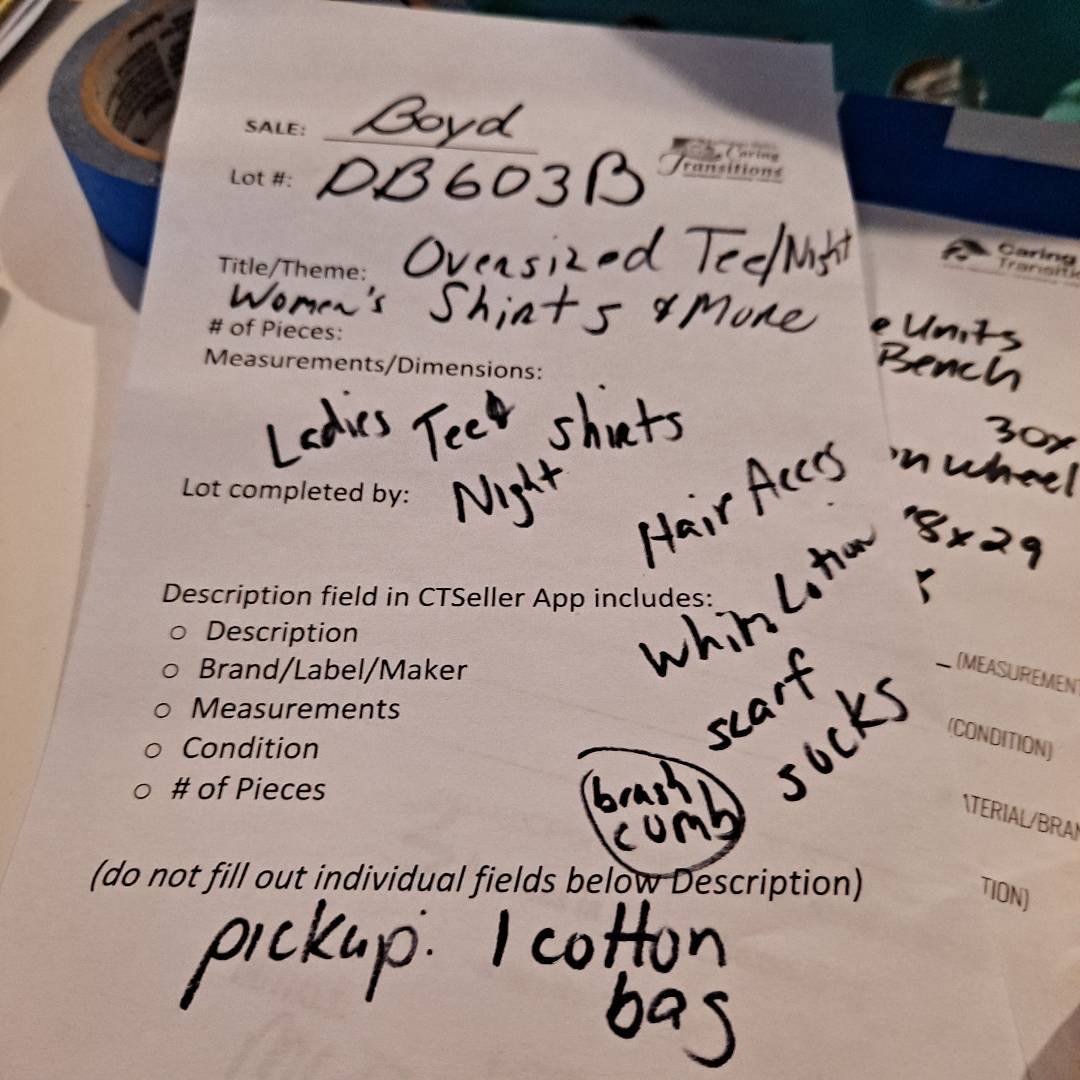 SALE: Boyd
Caring
Transitions
Lot #: DB603B
Title/Theme: Oversized Tee/Night
Women's Shirts & More
# of Pieces:
Measurements/Dimensions:
Ladies Tee & shirts
Night
Lot completed by:
Hair Acces
White Lotion
scarf
socks
brush
cumb
Description field in CTSeller App includes:
o Description
o Brand/Label/Maker
o Measurements
o Condition
o # of Pieces
(do not fill out individual fields below Description)
pickup: 1 cotton
bag
Caring
e Units
Bench
30x
on wheel
8x29
(MEASUREMENT
(CONDITION)
TERIAL/BRAN
TION)